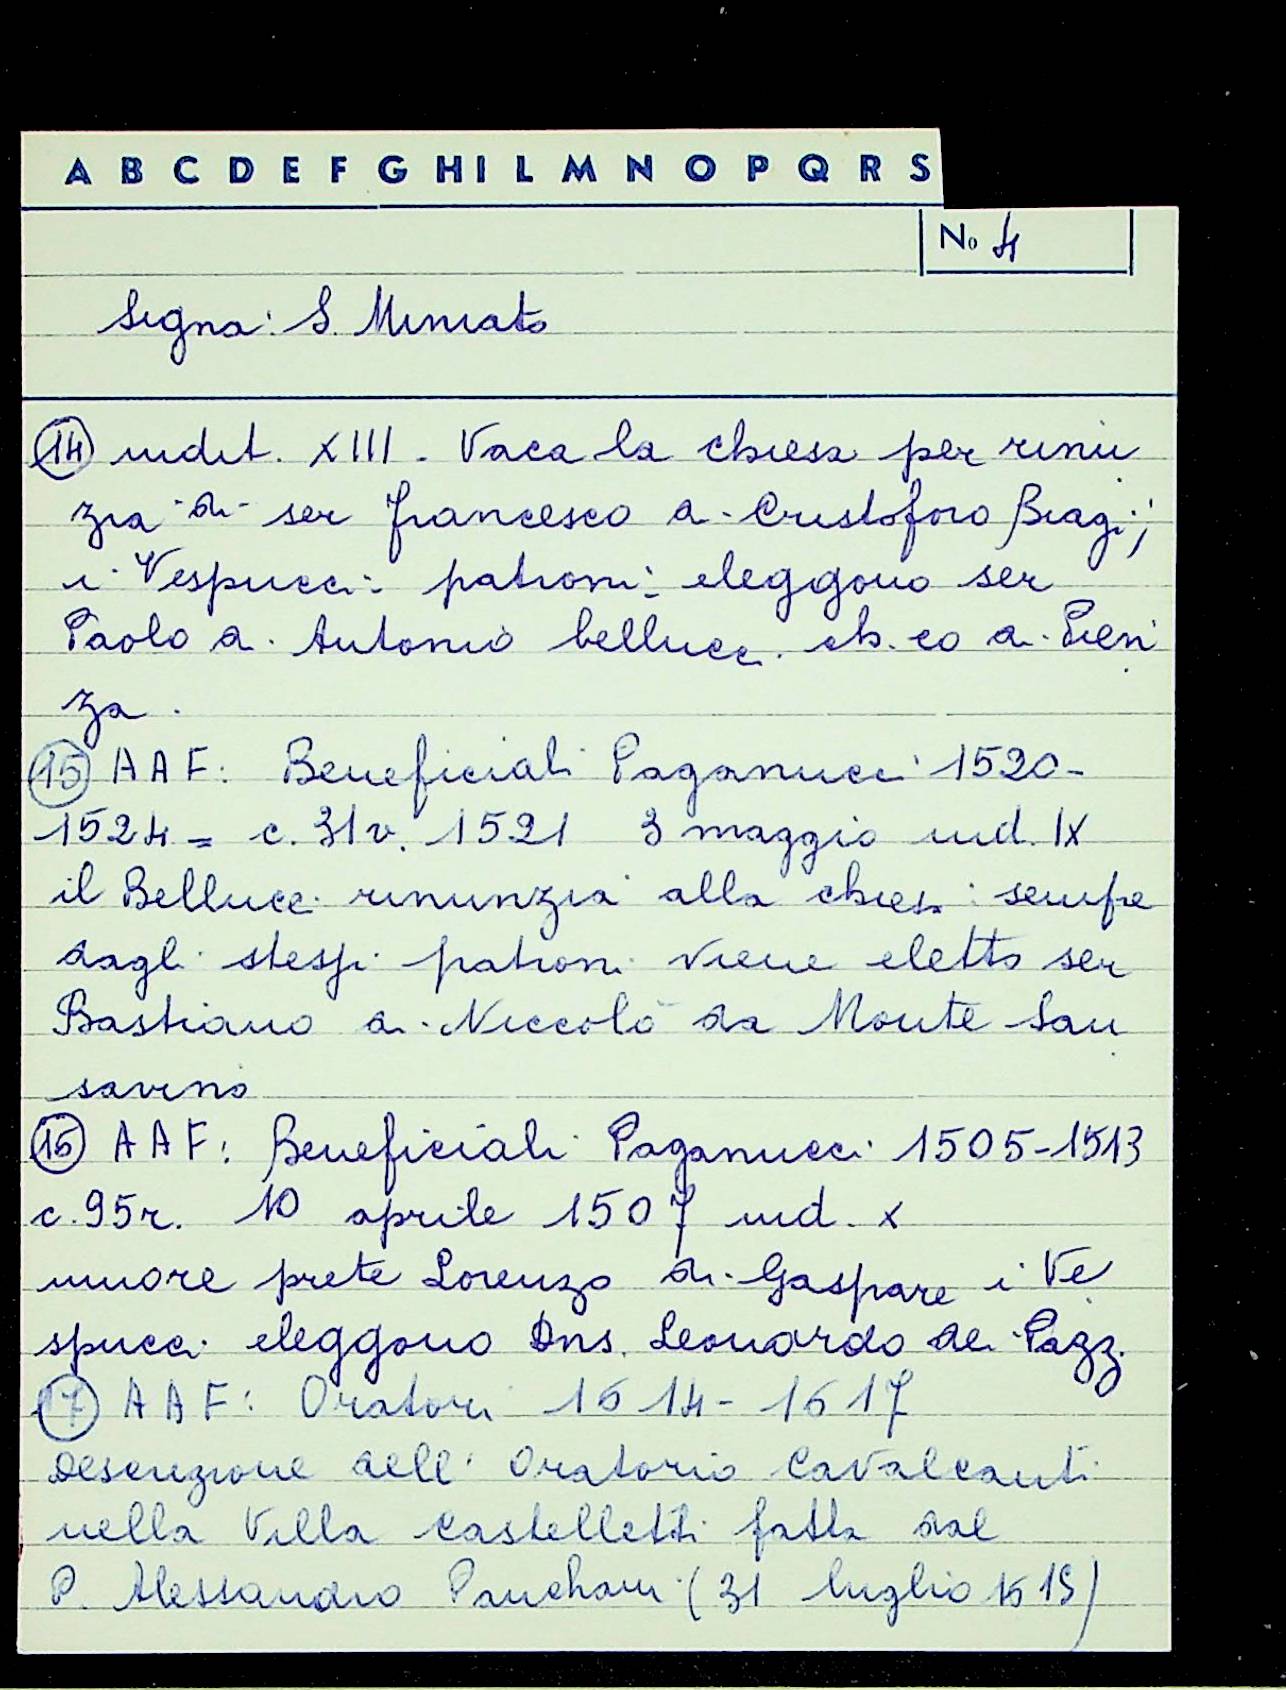 A B C D E F G H I L M N O P Q R S
No 4
Signa: S. Miniato
14 indit. XIII. Vaca la chiesa per rinu
zia di ser Francesco di Cristoforo Biagi;
i Vespucci patroni eleggono ser
Paolo di Antonio bellucci ch. co di Pien
za.
15 AAF: Beneficiali Paganucci 1520-
1524 = c. 31v. 1521 3 maggio ind. IX
il Bellucci rinunzia alla chiesa: sempre
dagli stessi patroni viene eletto ser
Bastiano di Niccolò da Monte San
savino
16 AAF: Beneficiali Paganucci 1505-1513
c. 95r. 10 aprile 1507 ind. X
muore prete Lorenzo di Gaspare i Ve
spucci eleggono Dns. Leonardo de Pazzi
17 AAF: Oratori 1614-1617
Descrizione dell'Oratorio Cavalcanti
nella Villa Castelletti fatta dal
P. Alessandro (31 luglio